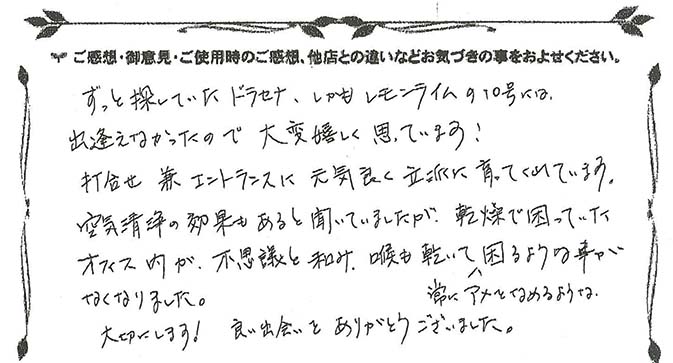 ご感想・御意見・ご使用時のご感想、他店との違いなどお気づきの事をおよせください。
ずっと探していたドラセナ、しかもレモンライムの10号には、
出逢えなかったので大変嬉しく思っています!
打合せ兼エントランスに元気良く立派に育ってくれています。
空気清浄の効果もあると聞いていましたが、乾燥で困っていた
オフィス内が、不思議と和み、喉も乾いて困るような事が
なくなりました。
常にアメをなめるような、
大切にします! 良い出会いをありがとうございました。